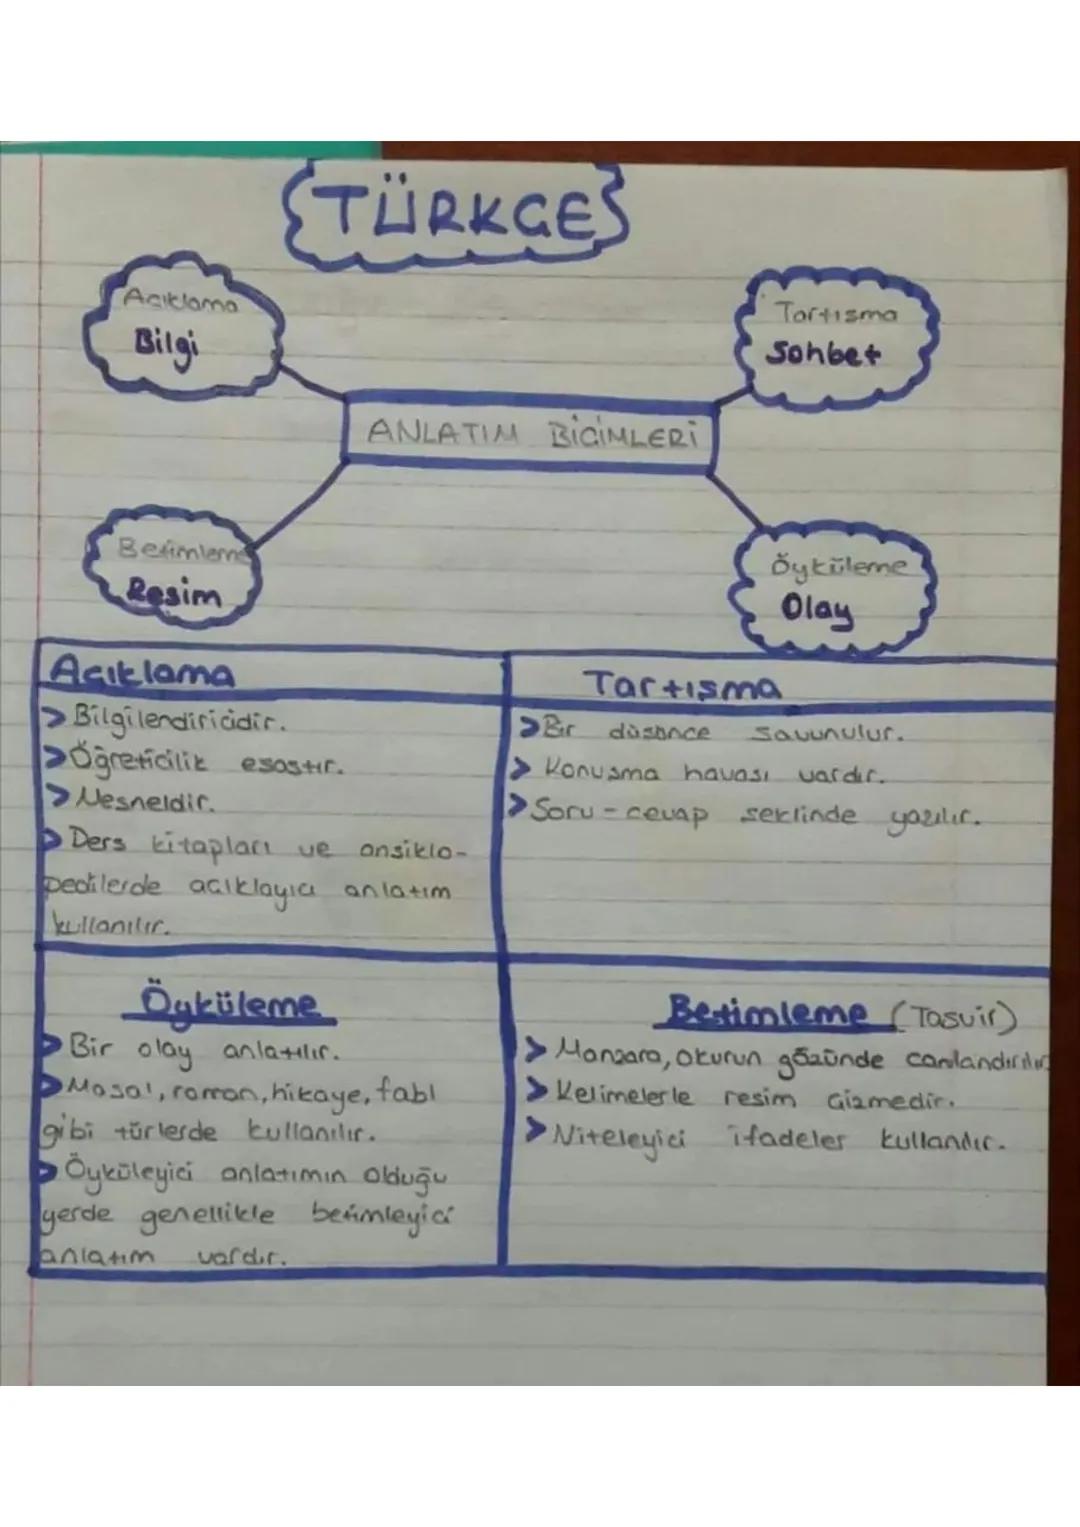 TÜRKÇE
Açıklama
Bilgi
Tartışma
Sohbet
ANLATIM BİÇİMLERİ
Betimleme
Resim
Öyküleme
Olay
Açıklama
> Bilgilendiricidir.
> Öğreticilik esastır.
> Nesneldir.
> Ders kitapları ve ansiklo-
pedilerde açıklayıcı anlatım
kullanılır.
Tartışma
> Bir düşünce savunulur.
> Konuşma havası vardır.
> Soru-cevap şeklinde yazılır.
Öyküleme
> Bir olay anlatılır.
> Masal, roman, hikaye, fabl
gibi türlerde kullanılır.
> Öyküleyici anlatımın olduğu
yerde genellikle betimleyici
anlatım vardır.
Betimleme (Tasvir)
> Manzara, okurun gözünde canlandırılır
> Kelimelerle resim çizmedir.
> Niteleyici ifadeler kullanılır.